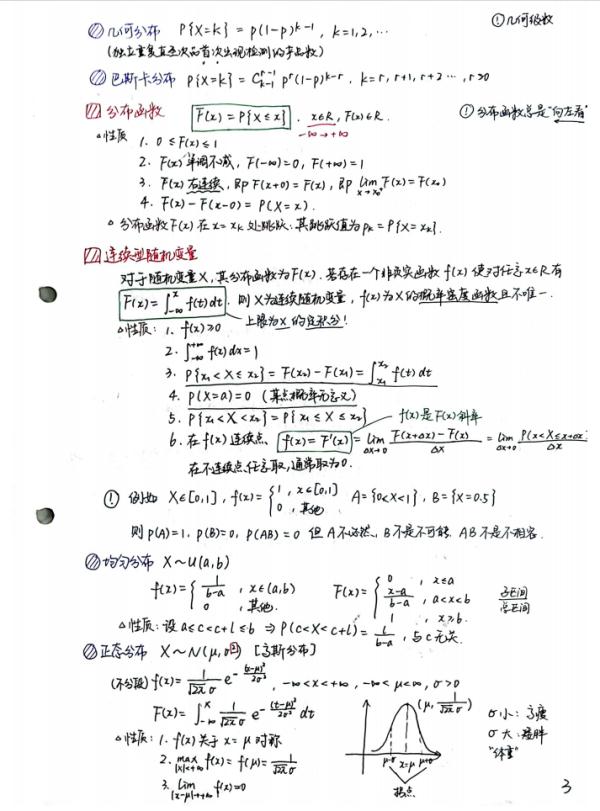 几何分布 P{X=k} = p(1-p)^{k-1}, k=1,2,…
① 几何级数
(独立重复直至次品首次出现检测的产品数)
巴斯卡分布 P{X=k} = C_{k-1}^{r-1} p^r(1-p)^{k-r}, k=r, r+1, r+2 …, r>0
分布函数 F(x) = P{X≤x}, x∈R, F(x)∈R.
-∞→+∞
! 分布函数总是"向左看"
△性质 1. 0≤F(x)≤1
2. F(x)单调不减, F(-∞)=0, F(+∞)=1
3. F(x)右连续, 即 F(x+0)=F(x), 即 lim_{x→x₀⁺} F(x)=F(x₀)
4. F(x)-F(x-0)=P(X=x).
△ 分布函数F(x)在x=x_k处跳跃: 其跳跃值为p_k=P{X=x_k}.
连续型随机变量
对于随机变量X, 其分布函数为F(x). 若存在一个非负实函数f(x)使对任意x∈R有
F(x)=∫_{-∞}^{x} f(t)dt. 则X为连续随机变量, f(x)为X的概率密度函数且不唯一.
上限为x的定积分!
△性质: 1. f(x)≥0
2. ∫_{-∞}^{+∞} f(x)dx=1
3. P{x₁<X≤x₂}=F(x₂)-F(x₁)=∫_{x₁}^{x₂} f(t)dt
4. P(X=a)=0 (某点概率无意义)
5. P{x₁<X<x₂}=P{x₁≤X≤x₂}
f(x)是F(x)斜率
6. 在f(x)连续点, f(x)=F'(x)=lim_{Δx→0} \frac{F(x+Δx)-F(x)}{Δx}=lim_{Δx→0} \frac{P(x<X≤x+Δx)}{Δx}
在不连续点任意取, 通常取为0.
! 例如 X∈[0,1], f(x)={1, x∈[0,1] 0, 其他 A={0<X<1}, B={X=0.5}
则 P(A)=1, P(B)=0, P(AB)=0 但A不必然, B不是不可能, AB不是不相容.
均匀分布 X~U(a,b)
f(x)={\frac{1}{b-a}, x∈(a,b) 0, 其他. F(x)={0, x≤a \frac{x-a}{b-a}, a<x<b 1, x≥b. \frac{子区间}{总区间}
△性质: 设 a≤c<c+l≤b ⇒ P(c<X<c+l)=\frac{l}{b-a}, 与c无关.
正态分布 X~N(μ,σ²) [高斯分布]
(不分段) f(x)=\frac{1}{\sqrt{2π}σ} e^{-\frac{(x-μ)²}{2σ²}}, -∞<x<+∞, -∞<μ<∞, σ>0
F(x)=∫_{-∞}^{x} \frac{1}{\sqrt{2π}σ} e^{-\frac{(t-μ)²}{2σ²}} dt
(μ, \frac{1}{\sqrt{2π}σ})
σ小: 高瘦
σ大: 矮胖
"体重"
△性质: 1. f(x)关于x=μ对称
2. max_{|x|<+∞} f(x)=f(μ)=\frac{1}{\sqrt{2π}σ}
3. lim_{|x-μ|→+∞} f(x)=0
μ-σ x=μ μ+σ
拐点
3